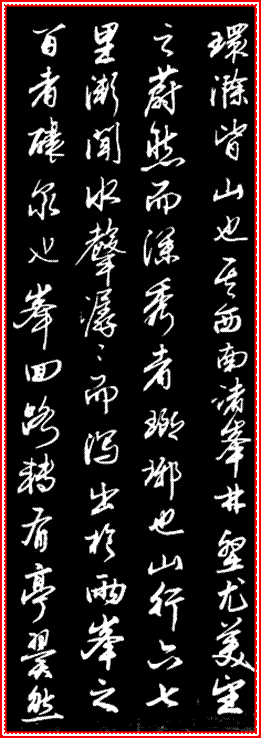 環滁皆山也其西南諸峯林壑尤美望
之蔚然而深秀者瑯琊也山行六七
里漸聞水聲潺々而瀉出於兩峯之
間者釀泉也峯回路轉有亭翼然